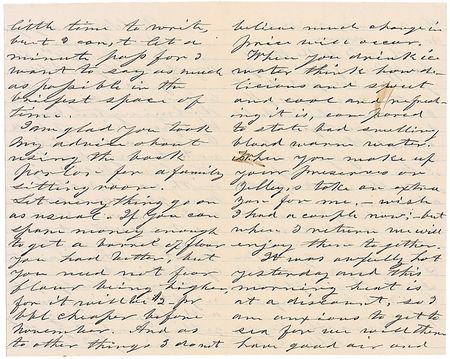 little time to write,
but I can,t let a
minute pass for I
want to say as much
as possible in the
briefest space of
time.
I am glad you took
my advice about
using the back
parlor for a family
sitting room.
Let everything go on
as usual. If you can
spare money enough
to get a barrel of flour
you had better, but
you need not fear
flour being higher
for it will be $2- pr
bbl cheaper before
November. And as
to other things I do not
believe much change in
price will occur.
When you drink ice
water think how de-
licious and sweet
and cool and refresh-
ing it is, compared
to stale bad smelling
blood warm water.
When you make up
your preserves or
jelley,s take an extra
jar for me,- wish
I had a couple now:- but
when I return we will
enjoy them to gether.
It was awfully hot
yesterday and this
morning heat is
at a discount, so I
am anxious to get to
sea for we will then
have good air and